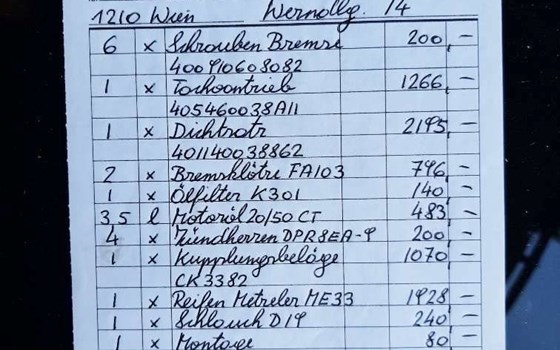 1210 Wien Wernollg. 14
6 x Schrauben Bremse 200,-
400910608082
1 x Tachoantrieb 1266,-
405460038A11
1 x Dichtsatz 2195,-
401140038862
2 x Bremsklötze FA103 796,-
1 x Ölfilter K301 140,-
3,5 l Motoröl 20/50 CT 483,-
4 x Zündkerzen DPR8EA-9 200,-
1 x Kupplungsbeläge 1070,-
CK3382
1 x Reifen Metzeler ME33 1928,-
1 x Schlauch D19 240,-
1 x Montage 80,-